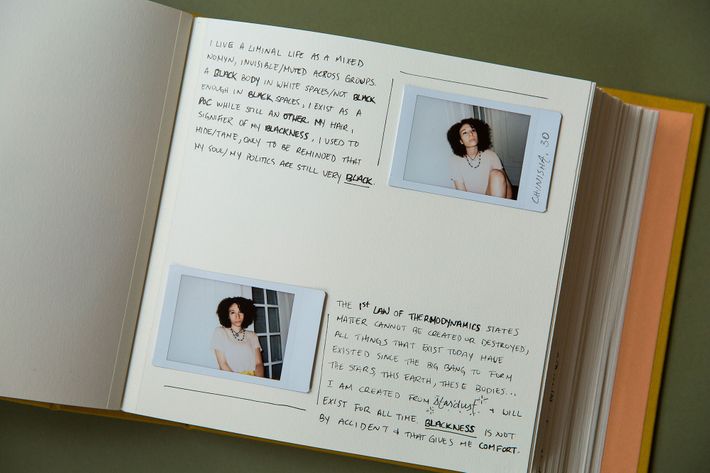 I LIVE A LIMINAL LIFE AS A MIXED
WOMYN, INVISIBLE/MUTED ACROSS GROUPS.
A BLACK BODY IN WHITE SPACES/NOT BLACK
ENOUGH IN BLACK SPACES, I EXIST AS A
POC WHILE STILL AN OTHER. MY HAIR, I
SIGNIFIER OF MY BLACKNESS, I USED TO
HIDE/TAME, ONLY TO BE REMINDED THAT
MY SOUL/MY POLITICS ARE STILL VERY BLACK.
CHINISHA, 30
THE 1ST LAW OF THERMODYNAMICS STATES
MATTER CANNOT BE CREATED OR DESTROYED,
ALL THINGS THAT EXIST TODAY HAVE
EXISTED SINCE THE BIG BANG TO FORM
THE STARS, THIS EARTH, THESE BODIES...
I AM CREATED FROM stardust & WILL
EXIST FOR ALL TIME. BLACKNESS IS NOT
BY ACCIDENT & THAT GIVES ME COMFORT.